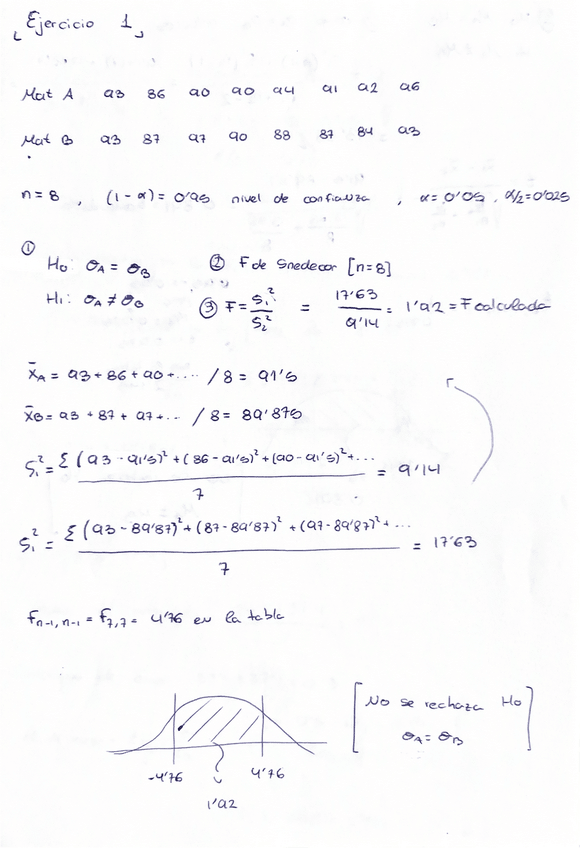 Ejercicio 1
Mat A 93 86 90 90 94 91 92 96
Mat B 93 87 97 90 88 87 84 93
n=8 , (1-α)= 0'95 nivel de confianza , α=0'05 . α/2=0'025
①
H₀: σA = σB
H₁: σA ≠ σB
② F de Snedecor [n=8]
③ F = S₁²/S₂² = 17'63/9'14 = 1'92 = F calculada
x̄A = 93+86+90+.... /8 = 91'5
x̄B = 93+87+97+... /8 = 89'875
S₁² = Σ(93-91'5)²+(86-91'5)²+(90-91'5)²+... / 7 = 9'14
S₁² = Σ(93-89'87)²+(87-89'87)²+(97-89'87)²+... / 7 = 17'63
fn-1,n-1 = f7,7 = 4'76 en la tabla
-4'76 4'76
1'92
No se rechaza H₀
σA = σB